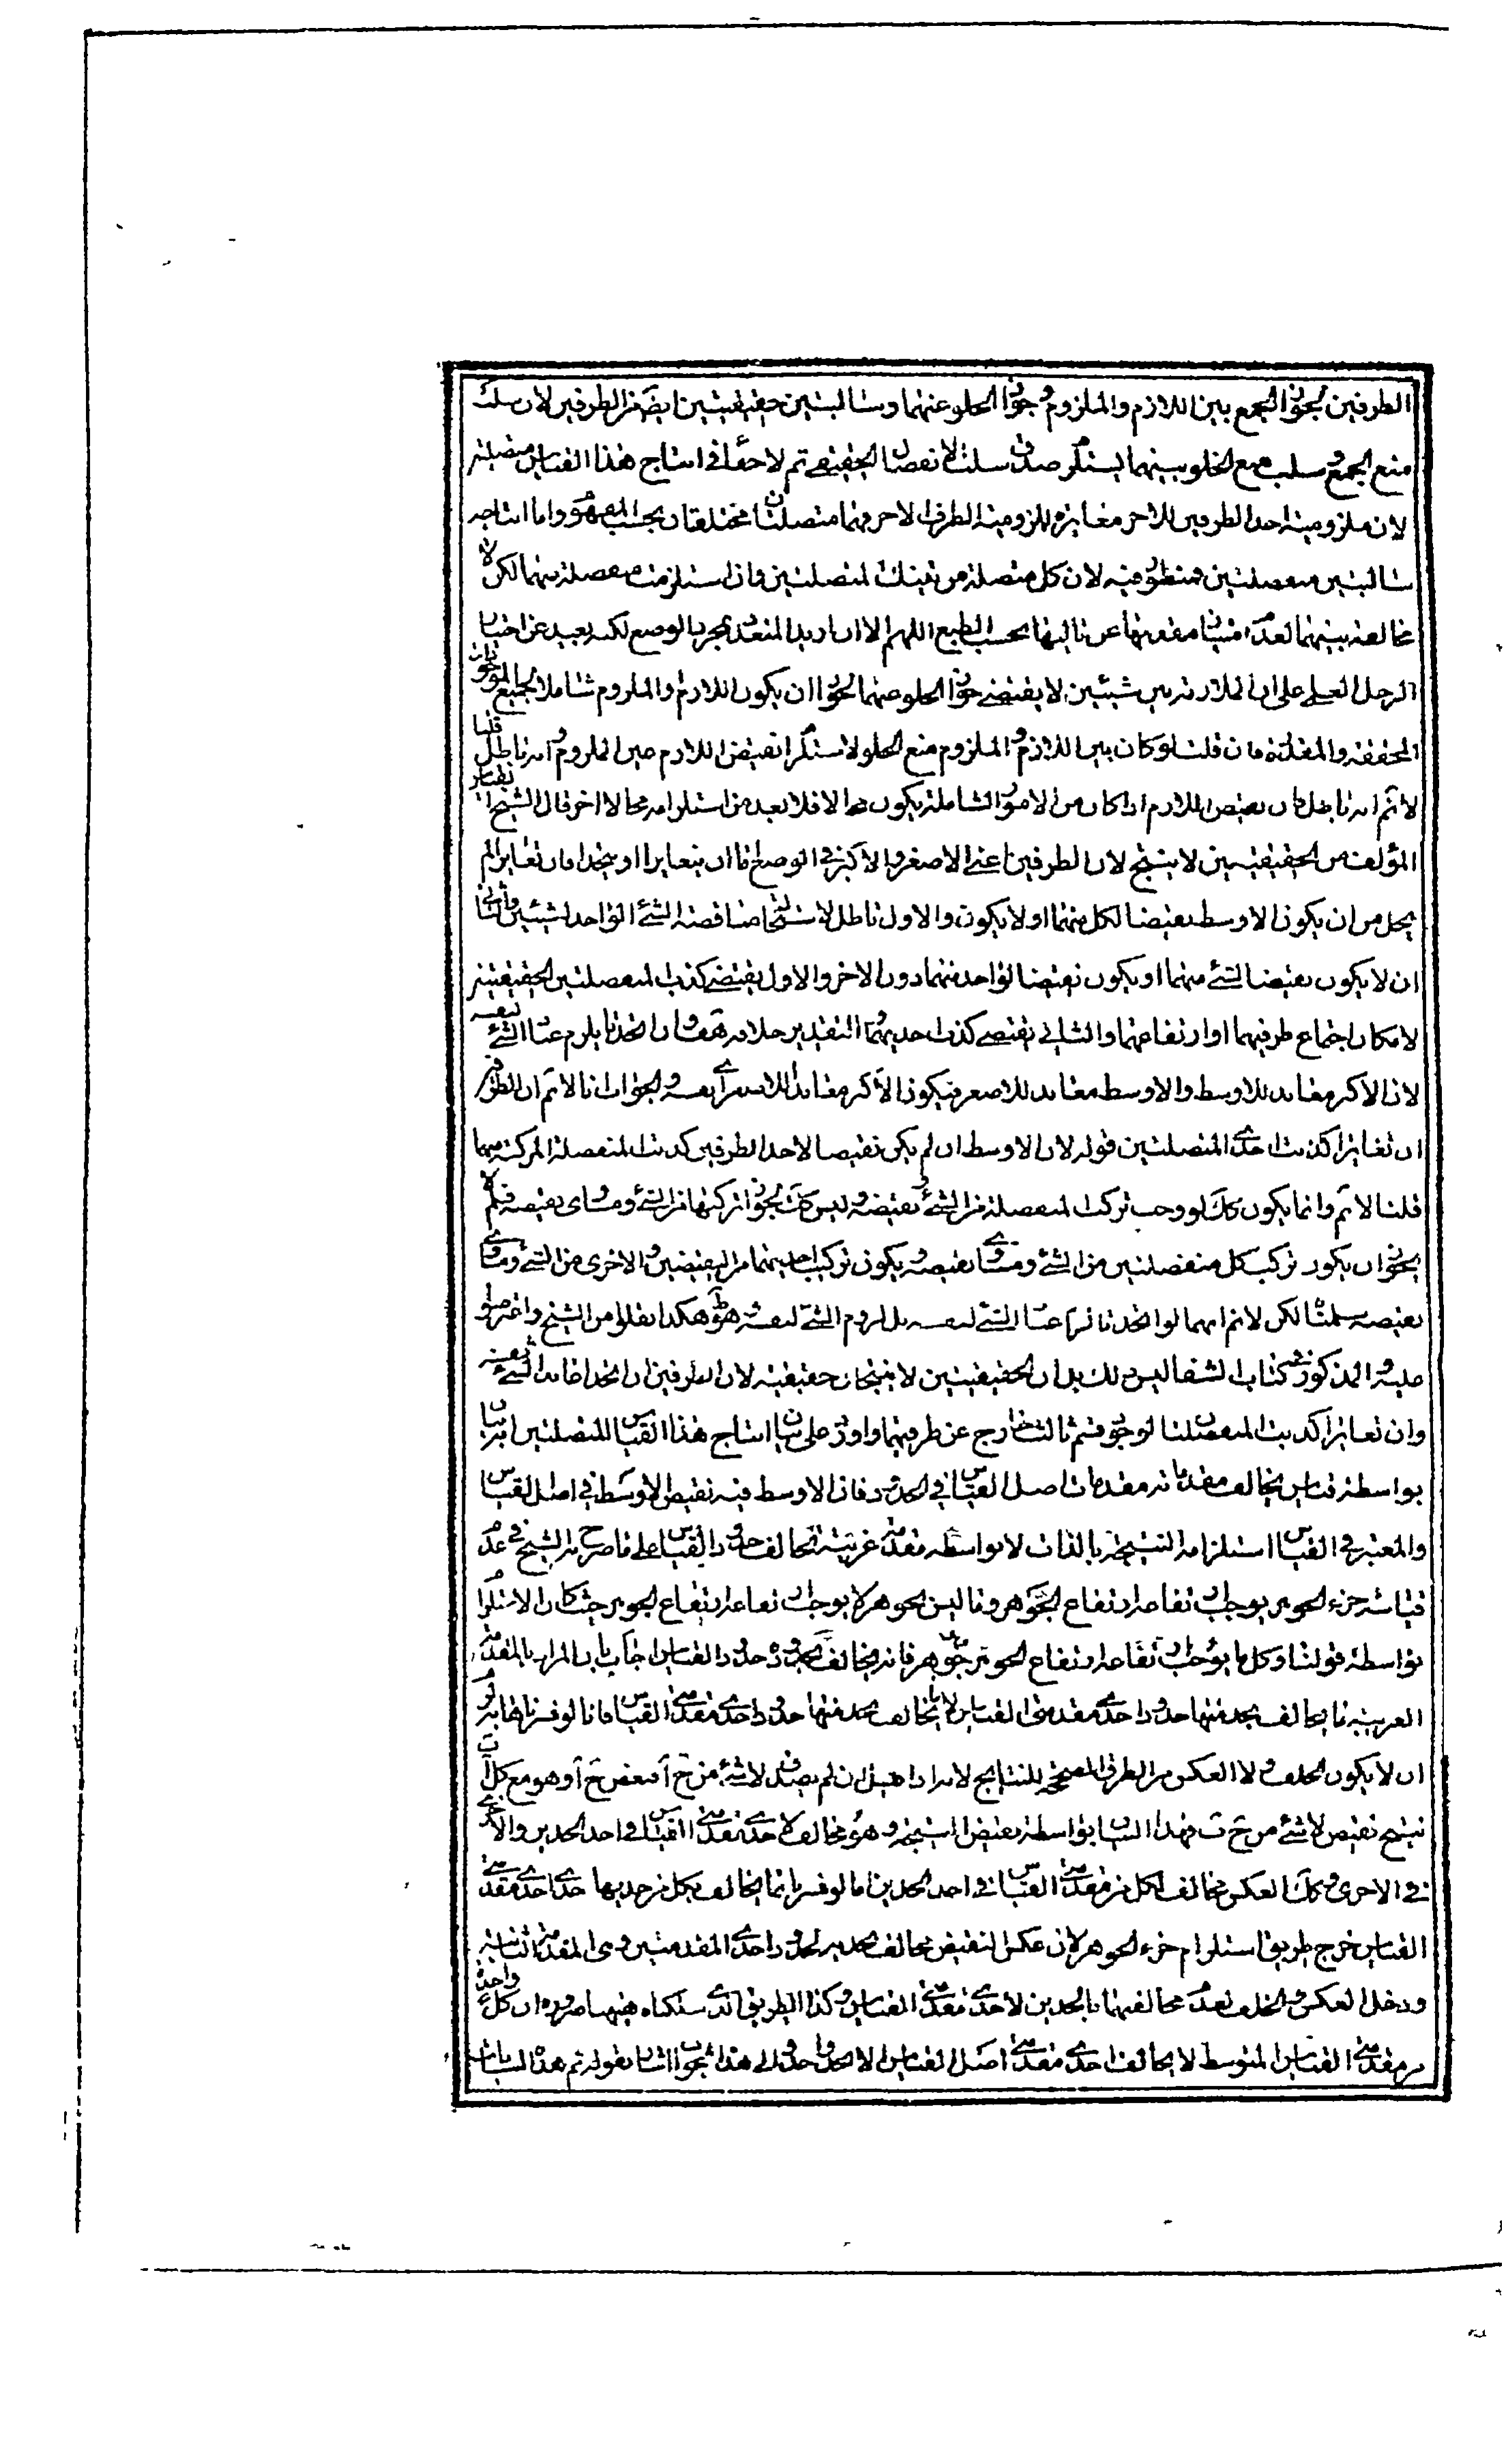 الطرفين لجواز الجمع بين اللازم والملزوم وجواز الخلو عنهما وسالبتين حقيقيتين ايضا من الطرفين لان سلب
منع الجمع وسلب منع الخلو بينهما يستلزم صدق سلب الانفصال الحقيقي ثم لا خفاء في انتاج هذا القياس متصلة
لان ملزومية احد الطرفين للاخر مغايرة لملزومية الطرف الاخر فهما متصلتان مختلفتان بحسب المفهوم واما انتاجه
سالبتين منفصلتين فمنظور فيه لان كل متصلة من تينك المتصلتين وان استلزمت منفصلة منهما لكن لا
مخالفة بينهما لعدم امتياز مقدمها عن تاليها بحسب الطبع اللهم الا ان يريد التعدد بمجرد الوضع لكنه بعيد عن اختيار
الرجل العملى على ان الملازمة بين شيئين لا يقتضى جواز الخلو عنهما لجواز ان يكون اللازم والملزوم شاملا لجميع الموجودات
المحققة والمقدرة فان قلت لو كان بين اللازم والملزوم منع الخلو لاستلزم نقيض اللازم عين الملزوم وانه باطل قلنا
لا نم انه باطل فان نقيض اللازم اذا كان من الامور الشاملة يكون محالا فلا بعد من استلزامه محالا اخر قال الشيخ القياس
المؤلف من الحقيقيتين لا ينتج لان الطرفين اعنى الاصغر والاكبر في الوضع اما ان يتغايرا او يتحدا فان تغايرا لم
يخل من ان يكون الاوسط نقيضا لكل منهما او لا يكون والاول باطل لاستحالة مناقضة الشئ الواحد لشيئين والثانى اما
ان لا يكون نقيضا لشئ منهما او يكون نقيضا لواحد منهما دون الاخر والاول يقتضى كذب المنفصلتين الحقيقيتين
لامكان اجتماع طرفيهما او ارتفاعهما والثانى يقتضى كذب احديهما التقدير خلافه هف وان اتحدتا يلزم عناد الشئ نفسه
لان الاكبر معاند للاوسط والاوسط معاند للاصغر فيكون الاكبر معاندا للاصغر اى نفسه والجواب انا لا نم ان الطرفين
ان تغايرا كذبت احدى المنفصلتين قوله لان الاوسط ان لم يكن نقيضا لاحد الطرفين كذبت المنفصلة المركبة منهما
قلنا لا نم وانما يكون كذلك لو وجب تركب المنفصلة من الشئ ونقيضه وليس كذلك لجواز تركبها من الشئ ومساوى نقيضه فلم لا
يجوز ان يكون تركيب كل منفصلتين من الشئ ومساوى نقيضه او يكون تركيب احديهما من النقيضين والاخرى من الشئ ومساوى
نقيضه سلمنا لكن لا نم انهما لو اتحدتا لزم عناد الشئ لنفسه بل لزوم الشئ لنفسه وهو ظ هكذا نقلوا من الشيخ واعترضوا
عليه والمذكور في كتاب الشفا ليس ذلك بل ان الحقيقيتين لا ينتجان حقيقية لان الطرفين ان اتحدا عاند الشئ نفسه
وان تغايرا كذبت المنفصلتان لوجود قسم ثالث خارج عن طرفيهما واورد على بيان انتاج هذا القياس للمتصلتين انه بيان
بواسطة قياس يخالف مقدماته مقدمات اصل القياس في الحدود فان الاوسط فيه نقيض الاوسط في اصل القياس
والمعتبر في القياس استلزامه النتيجة بالذات لا بواسطة مقدمة غريبة تخالف حدود القياس على ما صرح به الشيخ في عدم
قياسية جزء الجوهر يوجب ارتفاعه ارتفاع الجوهر وما ليس بجوهر لا يوجب ارتفاعه ارتفاع الجوهر حيث كان الاستلزام
بواسطة قولنا وكل ما يوجب ارتفاعه ارتفاع الجوهر فهو جوهر فانه يخالف بحدوده حدود القياس اجاب بان المراد بالمقدمة
الغريبة ما يخالف بحد منها حدود احدى مقدمتى القياس لا ما يخالف بحد منها حدود احدى مقدمتى القياس فانا لو فسرناها به لزم
ان لا يكون الخلف ولا العكس من الطرق المصححة للنتائج لانه اذا قيل ان لم يصدق لا شئ من ج آ فبعض ج آ وهو مع كل آ ب
ينتج نقيض لا شئ من ج ب فهذا البيان بواسطة نقيض النتيجة وهو مخالف لاحدى مقدمتى القياس في احد الحدين والاخرى
في الاخرى وكذلك العكس مخالف لكل من مقدمتى القياس في احد الحدين اما لو فسر بانما يخالف بكل من حديها حدى احدى مقدمتى
القياس خرج طريق استلزام جزء الجوهر لان عكس النقيض مخالف بحديه لحدود احدى المقدمتين وهى المقدمة الثانية
ودخل العكس والخلف لعدم مخالفتهما بالحدين لاحدى مقدمتى القياس وكذا الطريق الذى سلكناه ههنا ضرورة ان كل واحدة
من مقدمتى القياس المتوسط لا يخالف احدى مقدمتى اصل القياس الا بحد واحد والى هذا الجواب اشار بقوله ثم هذه البيانات